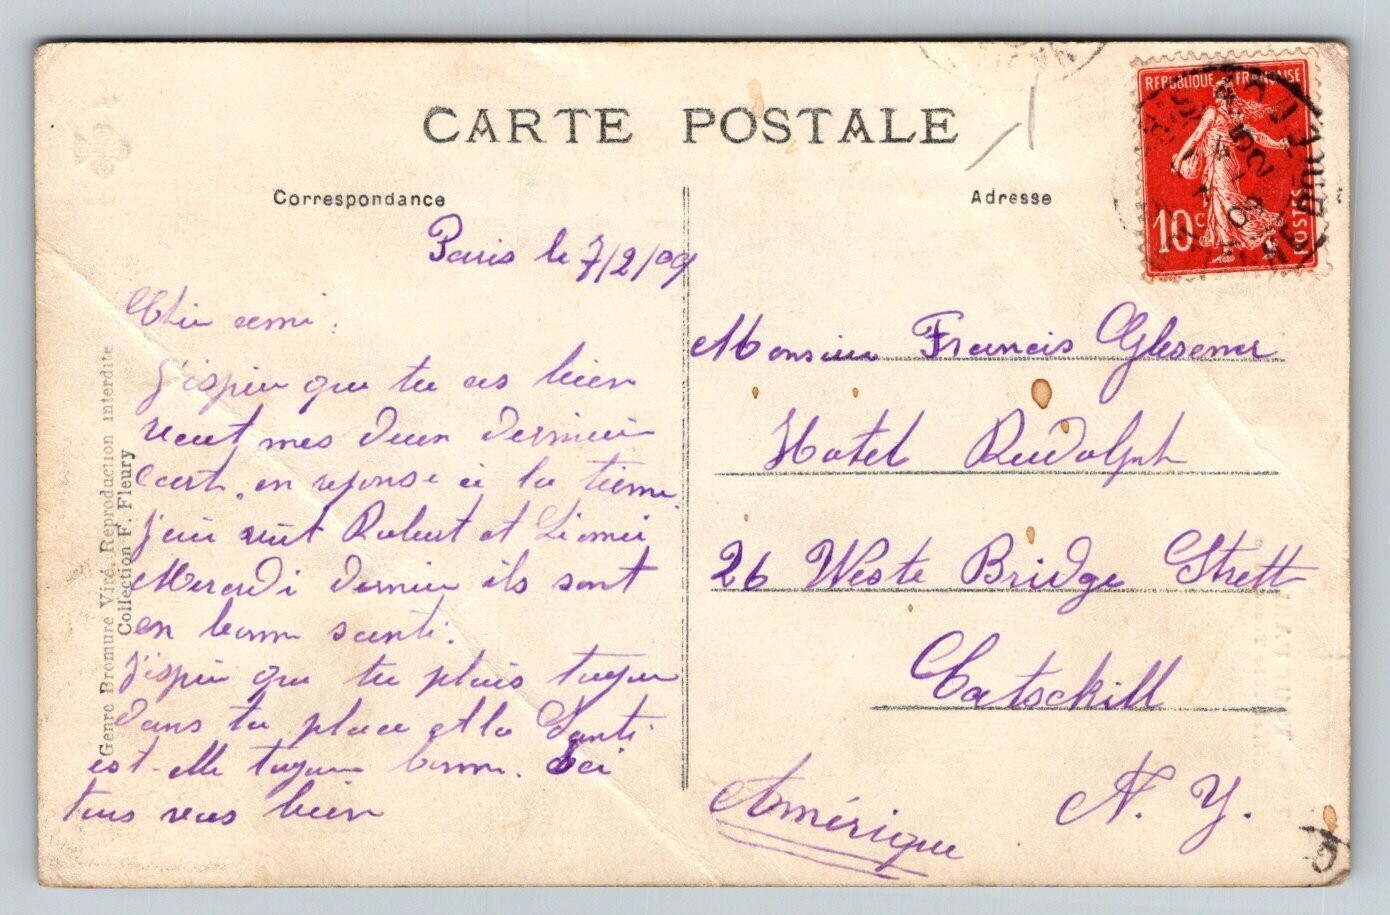 CARTE POSTALE
Correspondance
Adresse
REPUBLIQUE FRANÇAISE
10c
POSTES
Paris le 7/2/09
Cher ami:
j'espère que tu as bien
recut mes deux dernière
cart. en réponse à la tienne
j'ai vut Robert et
Mercredi dernier ils sont
en bonne santé.
j'espère que tu plais toujour
dans ta place et la Santé
est-elle toujour bonne. Ici
tous vas bien
Monsieur Francis
Hotel Rudolph
26 Weste Bridge Strett
Catsckill
N. Y.
Amérique
Genre Bromure Viré Reproduction interdite
Collection F. Fleury